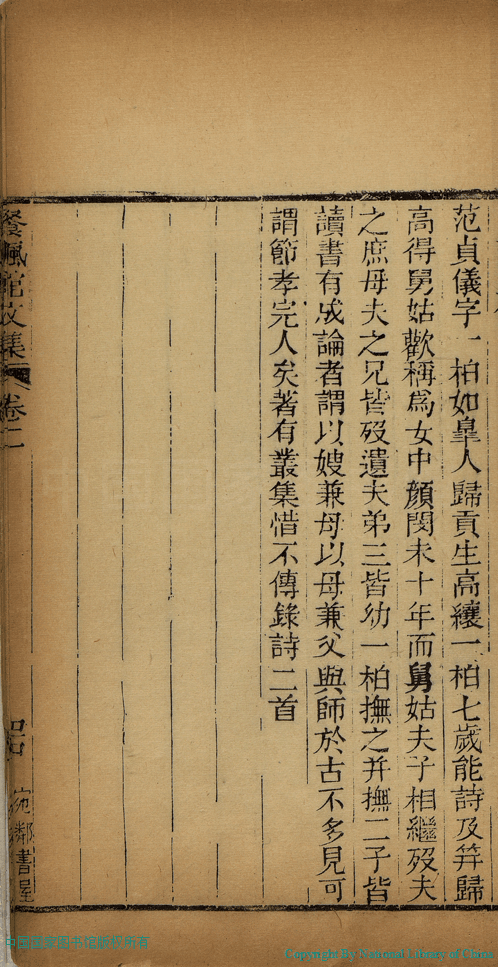 范貞儀字一柏如皐人歸貢生高纕一柏七歲能詩及笄歸
高得舅姑歡稱爲女中顏閔未十年而舅姑夫子相繼歿夫
之庶母夫之兄皆歿遺夫弟三皆幼一柏撫之幷撫二子皆
讀書有成論者謂以嫂兼母以母兼父與師於古不多見可
謂節孝完人矣著有叢集惜不傳錄詩二首
餐楓館文集 卷二
宛鄰書屋
中国国家图书馆版权所有
Copyright By National Library of China